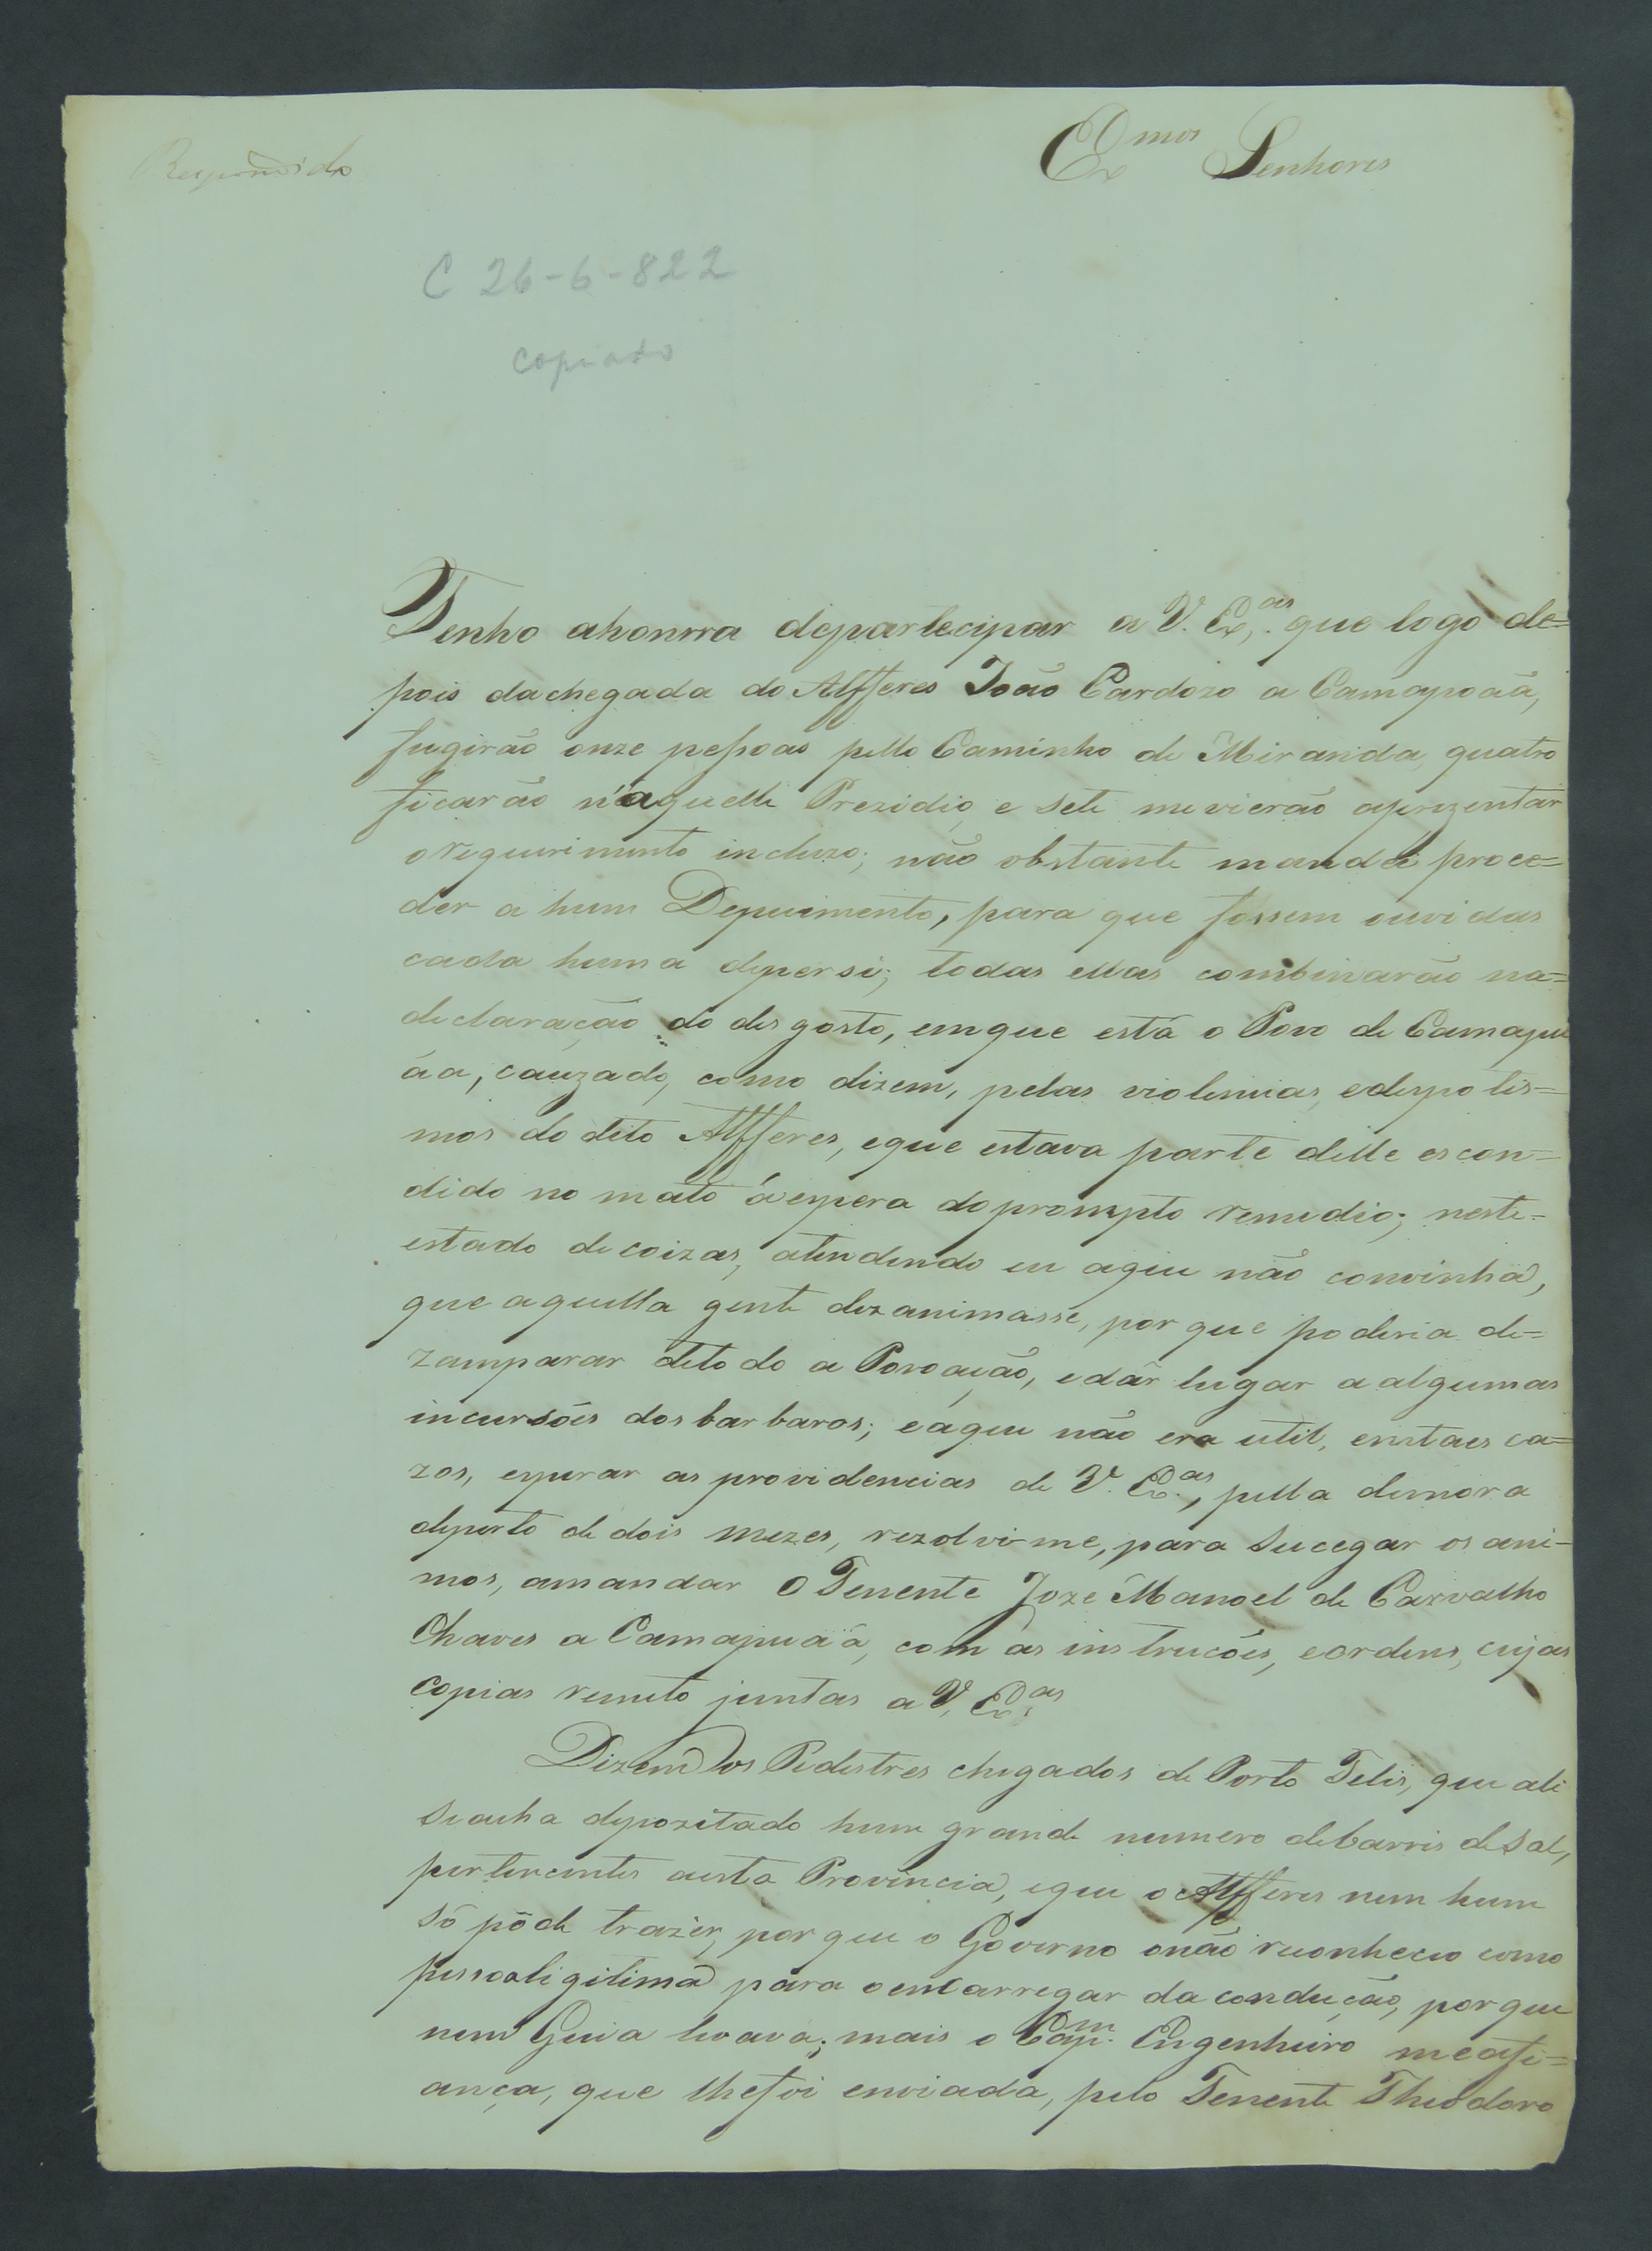 Respondido
Ex.mos Senhores
C 26-6-822
copiado
Tenho ahonrra departecipar a V. Ex.as que logo de=
pois dachegada do Alfferes João Cardozo a Camapoãã,
fugirão onze peſsoas pello Caminho de Miranda, quatro
ficarão n'aquelle Prezidio, e sete mevierão aprezentar
orequerimento incluzo; não obstante mandei proce=
der a hum Depuimento, para que fossem ouvidas
cada huma depersi; todas ellas combinarão na=
declaração do desgosto, emque está o Povo de Camapu
áa, cauzado, como dizem, pelas violencias, edespotis=
mos do dito Alfferes, eque estava parte delle escon=
dido no mato áespera doprompto remedio; neste=
estado decoizas, atendendo eu aque não convinha,
que aquella gente dezanimasse, por que poderia de=
zamparar detodo a Povoação, edár lugar aalgumas
incursões dos barbaros; eáque não era util, emtaes ca=
zos, esperar as providencias de V. Ex.as, pella demora
deperto de dois mezes, rezolvi-me, para sucegar os ani-
mos, amandar O Tenente Joze Manoel de Carvalho
Chaves a Camapuãá, com as instrucões, eordens, cujas
copias remeto juntas a V. Ex.as
Dizem os Pedestres chegados de Porto Felis, que ali
seacha depozitado hum grande numero debarris deSal,
pertencentes aesta Provincia, eque o Alfferes nem hum
só pôde trazer, por que o Governo onão reconheceo como
pessoaligitima para oencarregar da condução, por que
nem Guia levava; mais o Cap.m Engenheiro meafi=
ança, que lhefoi enviada, pelo Tenente Theodoro